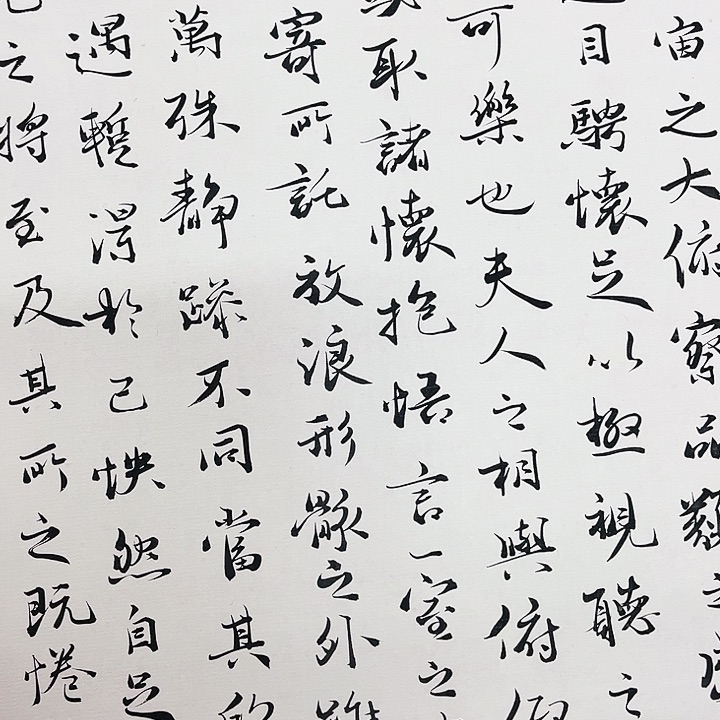 宙之大俯察品類之盛
目騁懷足以極視聽之
可樂也夫人之相與俯仰
或取諸懷抱悟言一室之
寄所託放浪形骸之外雖
萬殊靜躁不同當其欣
遇暫得於己怏然自足
之將至及其所之既惓